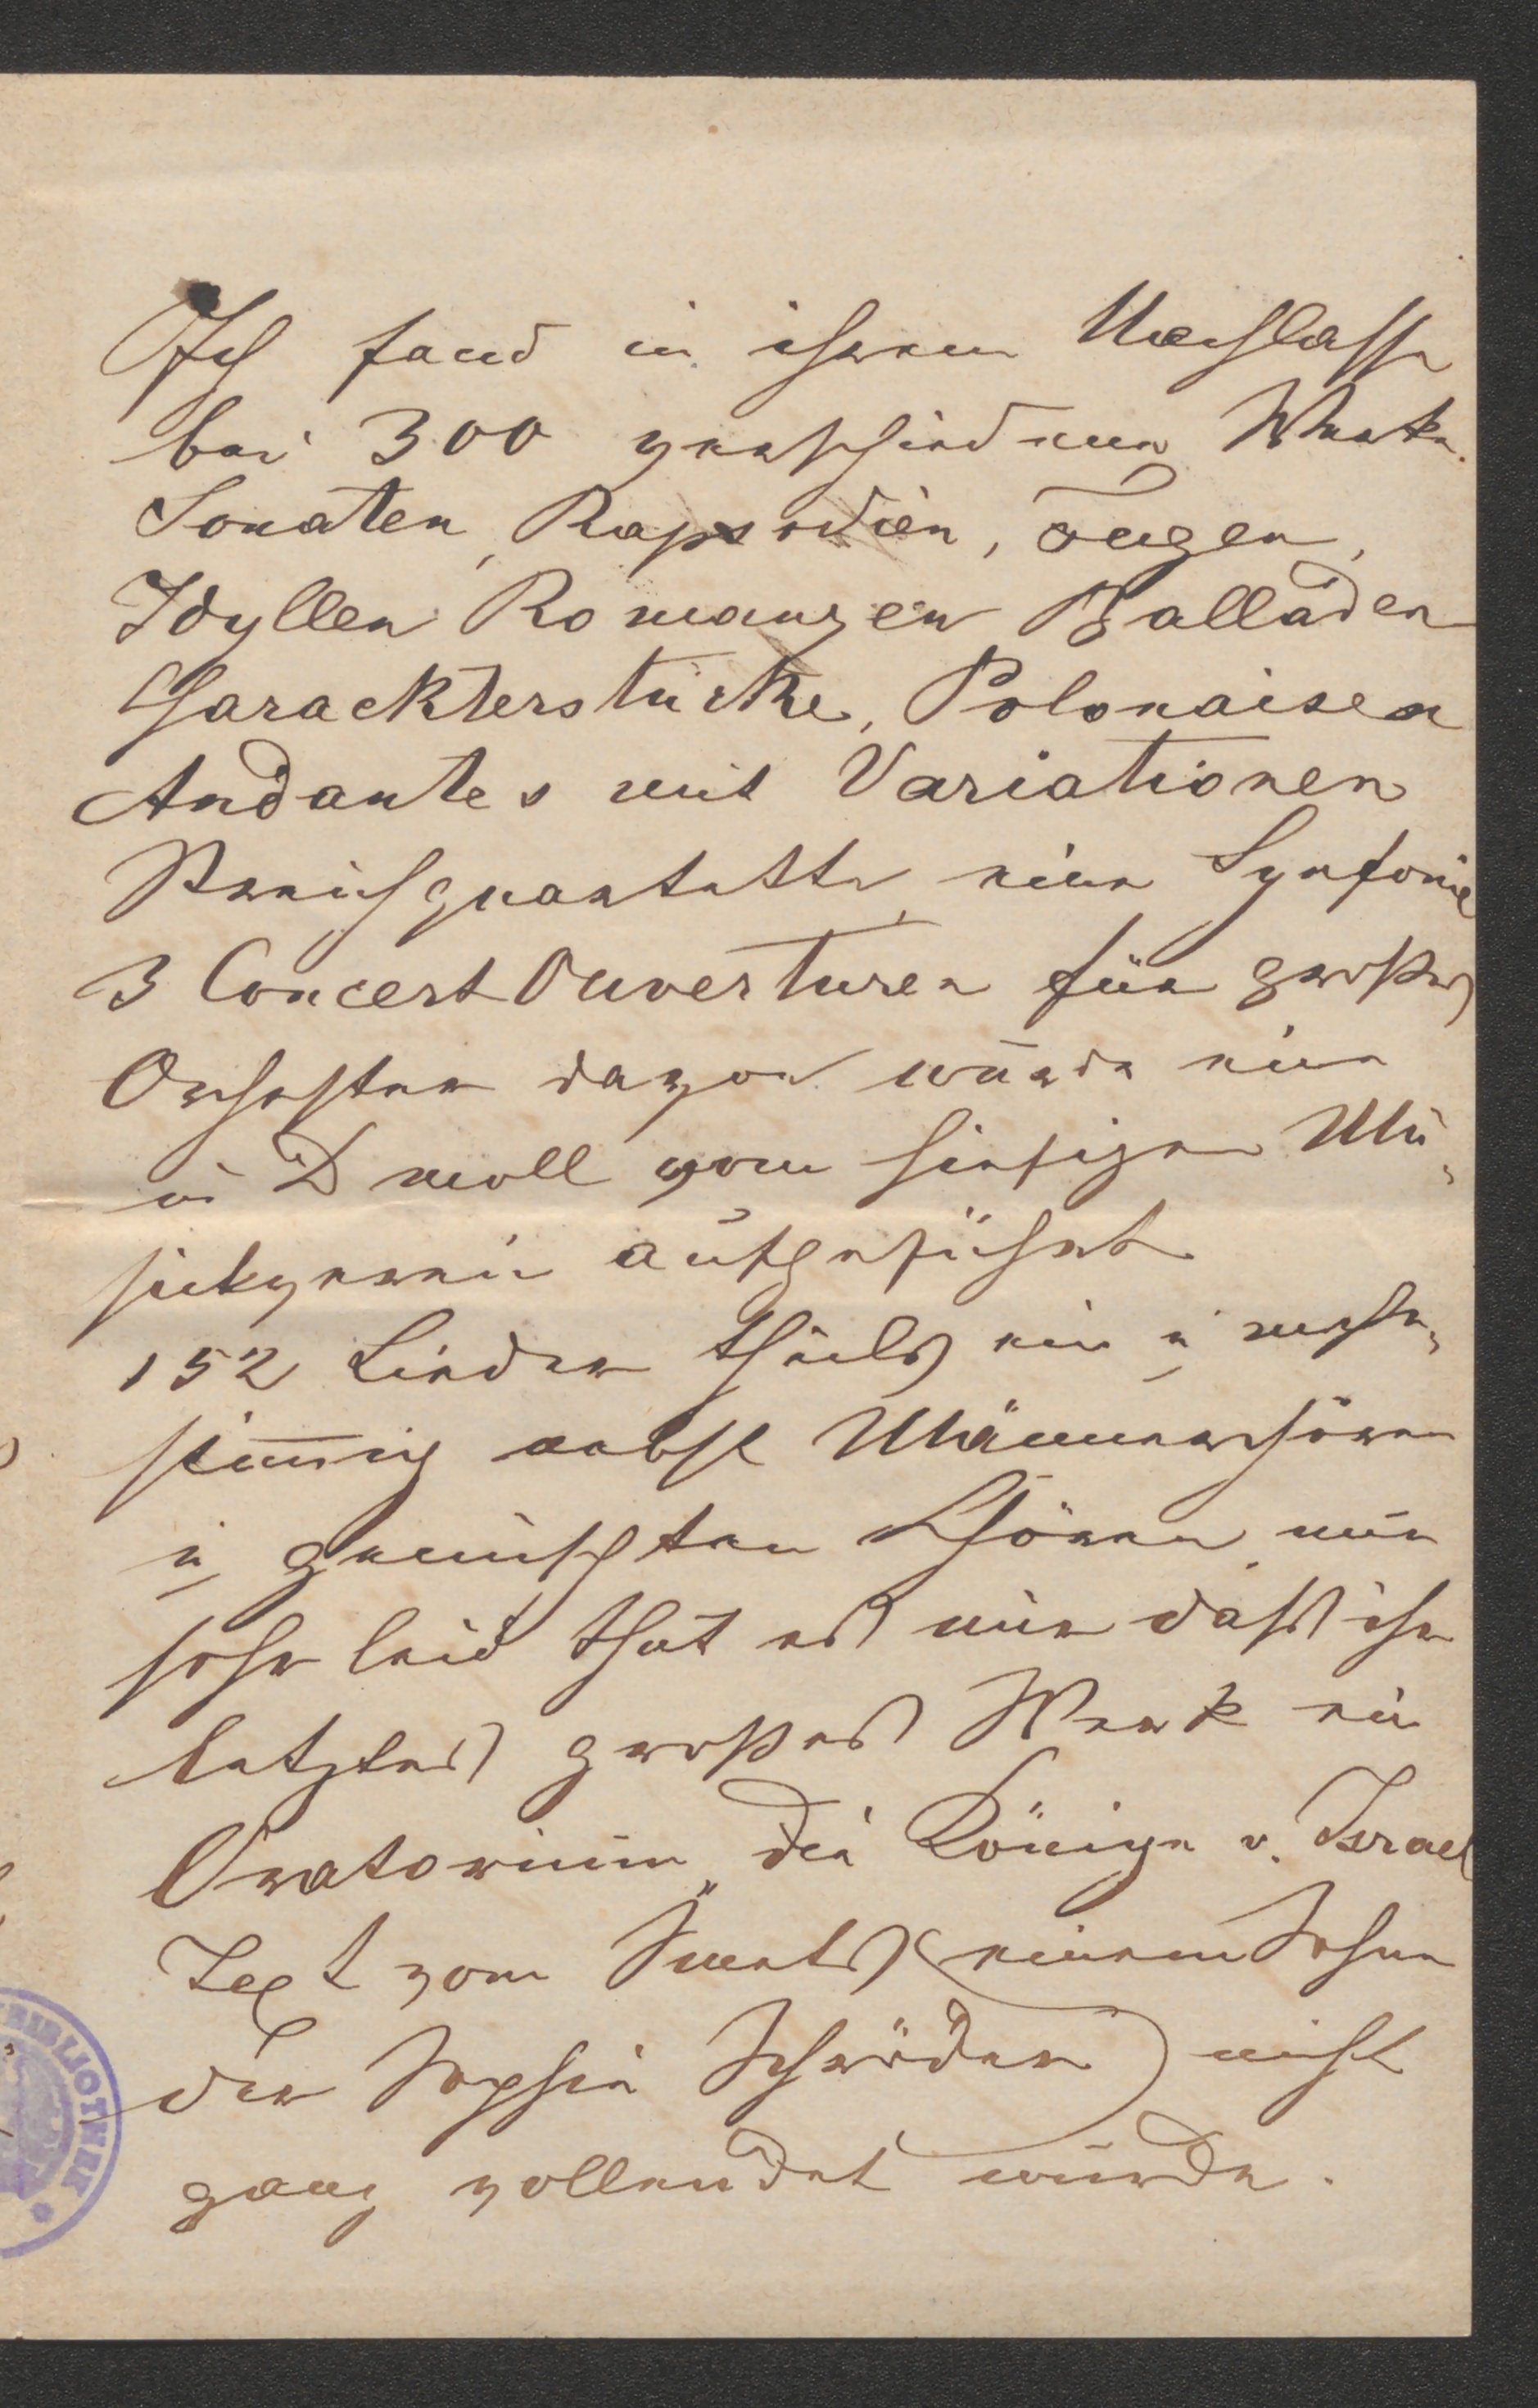 Ich fand in ihrem Nachlasse
bei 300 verschiedene Werke.
Sonaten, Rapsodien, Fugen,
Idyllen Romanzen Balladen
Charackterstücke, Polonaisen
Andantes mit Variationen
Streichquartette, eine Synfonie
3 Concert Ouverturen für großes
Orchester davon wurde eine
in D moll vom hiesigen Mu-
sickverein aufgeführt
152 Lieder theils ein u mehr-
stimmig nebst Männerchören
u gemischten Chören, nur
sehr leid that es mir daß ihr
letztes großes Werk ein
Oratorium „die Könige v. Israel
Text vom Smets (einem Sohne
der Sophie Schröder) nicht
ganz vollendet wurde.
BIBLIOTHEK